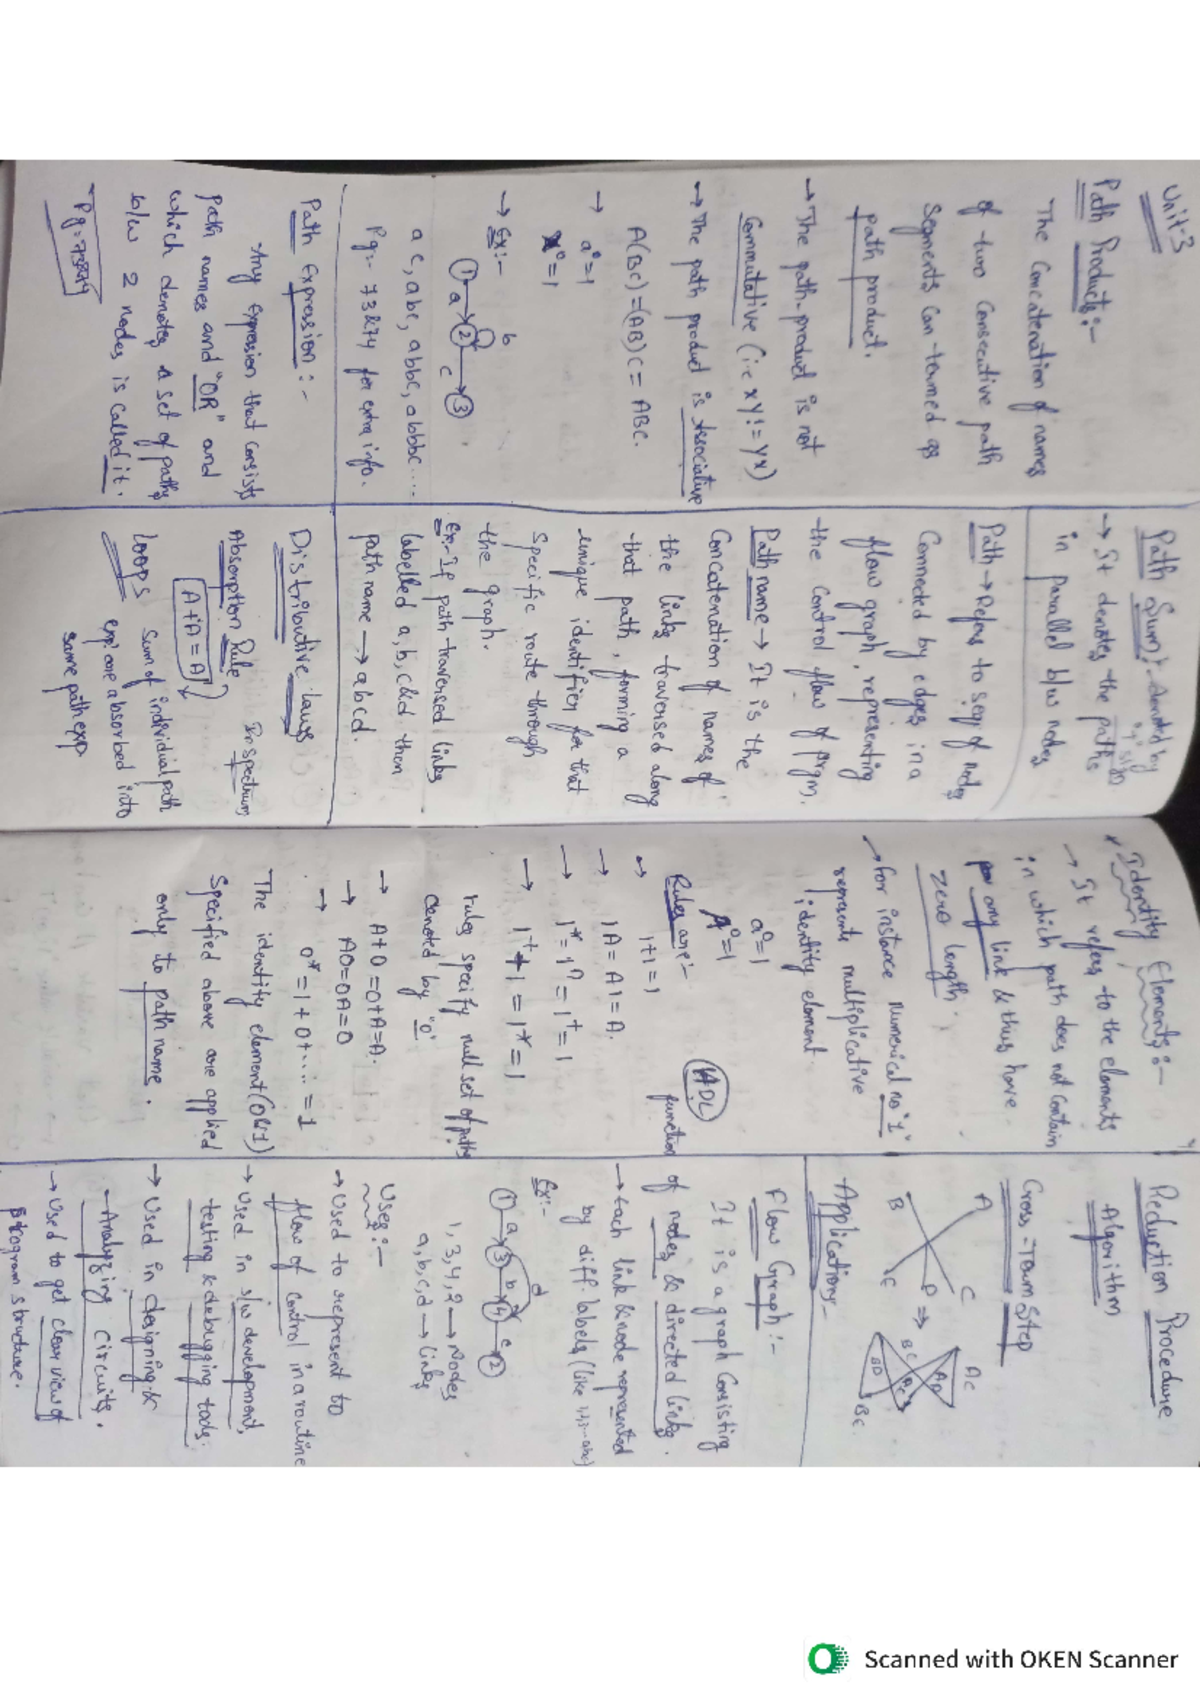 Unit-3
Path Products:-
The Concatenation of names
of two Consecutive path
segments Can termed as
path product.
→ The path-product is not
Commutative (i.e XY != YX)
→ The path product is Associative
A(BC)=(AB)C = ABC.
→ a⁰=1
X⁰=1
→ Ex:-
1 a 2 b c 3
ac, abc, abbc, abbbc ...
Pg:- 73&74 for extra info.
Path Expression :-
Any Expression that Consists
path names and "OR" and
which denotes a set of paths
b/w 2 nodes is called it.
Pg:-73&74
Path Sum:- denoted by
'+' sign
→ It denotes the paths
in parallel b/w nodes
Path → Refers to seq of nodes
Connected by edges in a
flow graph, representing
the control flow of prgm.
Path name → It is the
Concatenation of names of
the links traversed along
that path, forming a
unique identifier for that
specific route through
the graph.
Ex:- If path traversed links
labelled a,b,c&d then
path name → abcd.
Distributive laws
In spectrum
Absorption Rule
A+A = A
Sum of individual path
exp' are absorbed into
same path exp.
loops
* Identity Elements :-
→ It refers to the elements
in which path does not contain
any link & thus have
zero length.
→ for instance numerical no "1"
represents multiplicative
identity element.
a⁰=1
A⁰=1
Rules are:-
→ 1+1=1
→ 1A = A1 = A.
→ 1* = 1ⁿ = 1⁺ = 1
→ 1⁺+1 = 1* = 1
rules specify null set of paths
denoted by "0"
→ A+0 = 0+A = A.
→ A0 = 0A = 0
→ 0* = 1+0+.... = 1
The identity element (0&1)
Specified above are applied
only to path name.
Reduction Procedure
Algorithm
Cross-Term Step
A C
B D E
⇒
AC AD AE
BC BD BE
Applications:-
Flow Graph:-
It is a graph Consisting
function of nodes & directed links.
→ Each link & node represented
by diff. labels (like 1,2,3... abc)
Ex:-
1 a 3 b 4 c 2 d
1,3,4,2 → Nodes
a,b,c,d → Links
Uses:-
→ Used to represent to
flow of Control in a routine
→ Used in s/w development,
testing & debugging tools.
→ Used in designing &
Analyzing circuits.
→ Used to get clear view of
program structure.
Scanned with OKEN Scanner